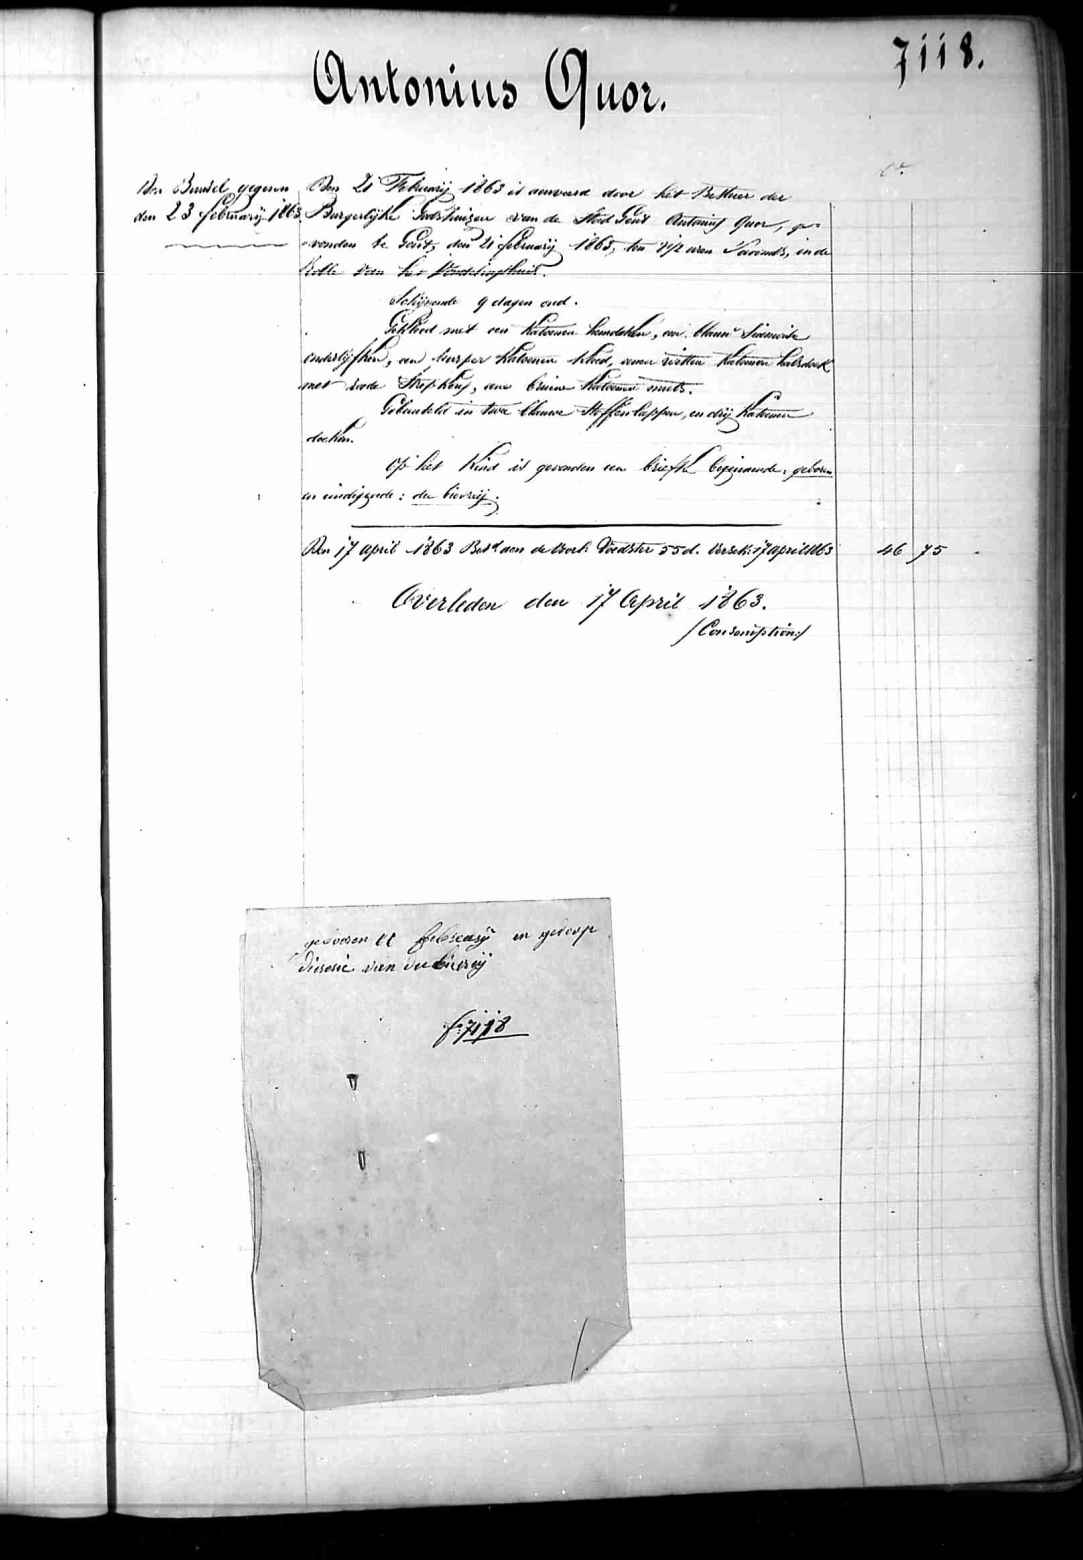 7118.
Antonius Quor.
Den Bundel gegeven
den 23 februarij 1863
Den 21 Februarij 1863 is aenveerd door het Bestuer der
Burgerlijke Godshuizen van de Stad Gent Antonius Quor, ge-
vonden te Gent, den 21 februarij 1863, ten 7 1/2 uren 's avonds, in de
Rolle van het
Schijnende 9 dagen oud.
Gekleed met een katoenen hemdeken, een blauw
onderlyfken, een purper katoenen kleed, eenen witten katoenen halsdoek
met roode streepkens, eene bruine katoenen muts.
Gebundeld in twee blauwe stoffen lappen, en drij katoenen
doeken.
Op het Kind is gevonden een briefke beginnende: geboren
en eindigende: du bievrij.
Den 17 april 1863 Bet.d aen de Voedster 55 d. 17 april 1863 46 75
Overleden den 17 April 1863.
/Consomption:/
geboren 11 februarij en gedoop
van du bievrij
f: 7118